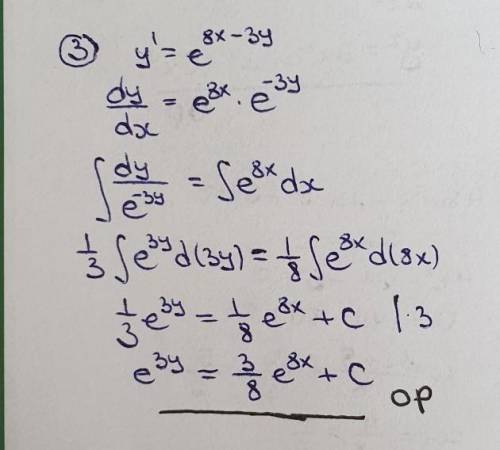 ③ y' = e^{8x-3y}
dy/dx = e^{8x} · e^{-3y}
∫ dy/e^{-3y} = ∫ e^{8x} dx
1/3 ∫ e^{3y} d(3y) = 1/8 ∫ e^{8x} d(8x)
1/3 e^{3y} = 1/8 e^{8x} + C / · 3
e^{3y} = 3/8 e^{8x} + C
OP